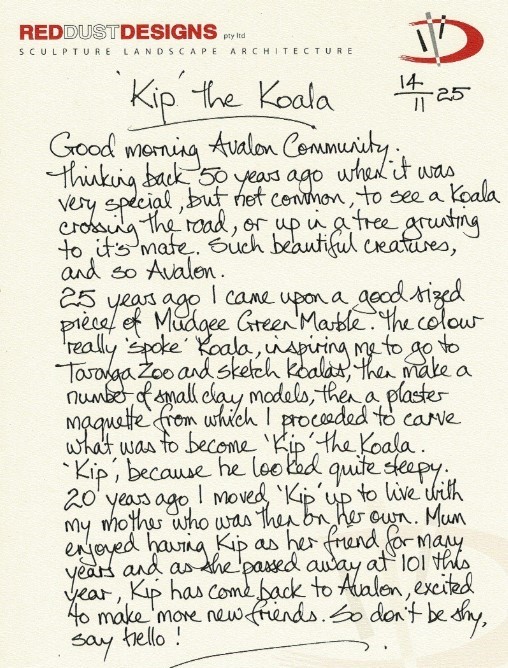 REDDUSTDESIGNS pty ltd
SCULPTURE LANDSCAPE ARCHITECTURE
'Kip' the Koala
14/11 25
Good morning Avalon Community.
Thinking back 50 years ago when it was
very special, but not common, to see a Koala
crossing the road, or up in a tree grunting
to it's mate. Such beautiful creatures,
and so Avalon.
25 years ago I came upon a good sized
piece of Mudgee Green Marble. The colour
really 'spoke' Koala, inspiring me to go to
Taronga Zoo and sketch koalas, then make a
number of small clay models, then a plaster
maquette from which I proceeded to carve
what was to become 'Kip' the Koala.
'Kip', because he looked quite sleepy.
20 years ago I moved 'Kip' up to live with
my mother who was then on her own. Mum
enjoyed having Kip as her friend for many
years and as she passed away at 101 this
year, Kip has come back to Avalon, excited
to make more new friends. So don't be shy,
say hello!